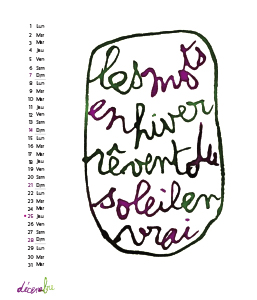 1 Lun
2 Mar
3 Mer
4 Jeu
5 Ven
6 Sam
7 Dim
8 Lun
9 Mar
10 Mer
11 Jeu
12 Ven
13 Sam
14 Dim
15 Lun
16 Mar
17 Mer
18 Jeu
19 Ven
20 Sam
21 Dim
22 Lun
23 Mar
24 Mer
25 Jeu
26 Ven
27 Sam
28 Dim
29 Lun
30 Mar
31 Mer
décembre
les mots
en hiver
rêvent du
soleil en
vrai